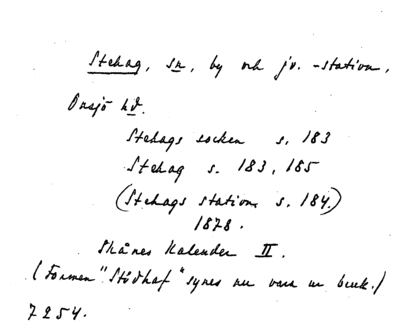 Stehag, sn, by och jv. -station,
Onsjö hd.
Stehags socken s. 183
Stehag s. 183, 185
(Stehags station s. 184.)
1878.
Skånes Kalender II.
(Formen "Stödhaf" synes nu vara ur bruk.)
7254.